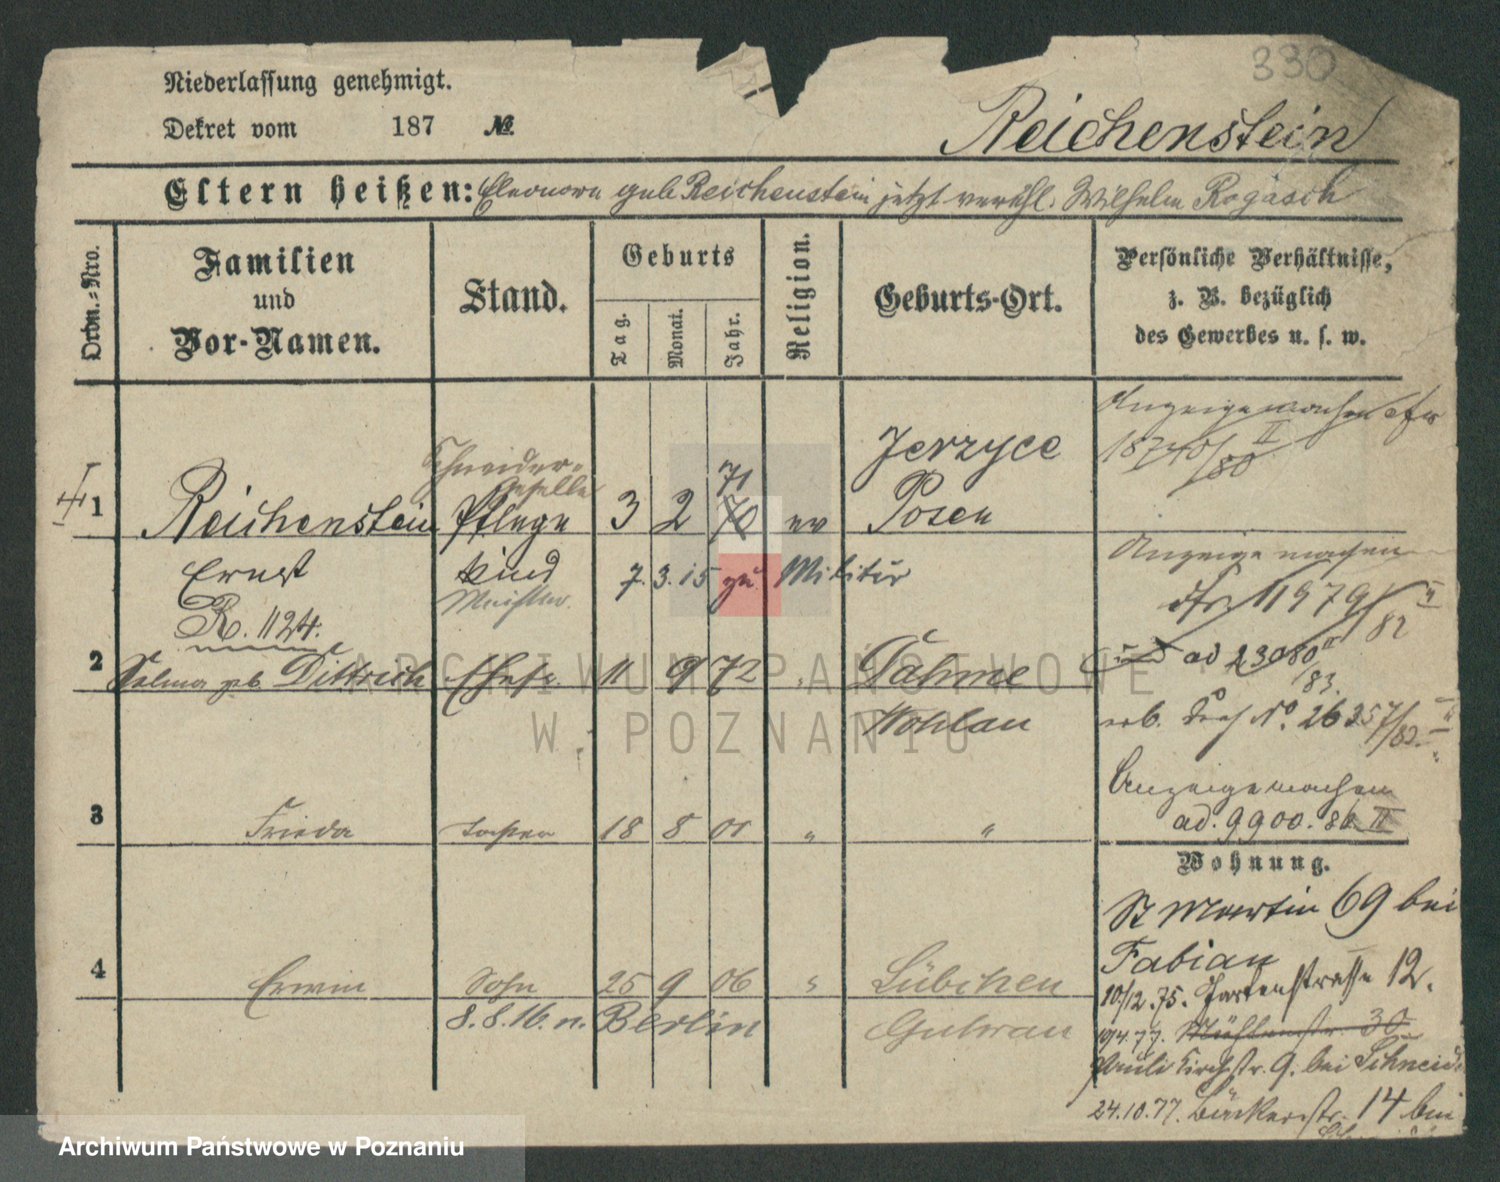 330
Niederlassung genehmigt.
Dekret vom 187 №
Reichenstein
Eltern heißen: Eleonora geb Reichenstein jetzt verehl. Wilhelm Rogasch
Ordn.-Nro.
Familien und Vor-Namen.
Stand.
Geburts
Tag.
Monat.
Jahr.
Religion.
Geburts-Ort.
Persönliche Verhältnisse,
z. B. bezüglich
des Gewerbes u. s. w.
Anzeige machen
Schneider-
Geselle
71
Jerzyce
1 Reichenstein Pflege 3 2 70 ev Posen
Ernst kind 7. 3. 15 zu Militär
Meister
R. 1124.
Anzeige machen
11979/82 II
ad 23080
83.
2 Selma geb. Dittrich Ehefr. 11 9 72 " Dahme
Wohlau
No. 26357/82 II
Anzeige machen
ad. 9900. 86 II
3 Frieda Tochter 18 8 01 " "
Wohnung.
St Martin 69 bei
Fabian
4 Erwin Sohn 25 9 06 " Lübchen
8. 8. 16. n. Berlin Guhrau
10/12. 75. Gartenstrasse 12.
19/4. 77. Mühlenstr. 30
Pauli Kirchstr. 9. bei Schneid
24.10.77. Bäckerstr. 14 bei
ARCHIWUM PAŃSTWOWE
W POZNANIU
Archiwum Państwowe w Poznaniu